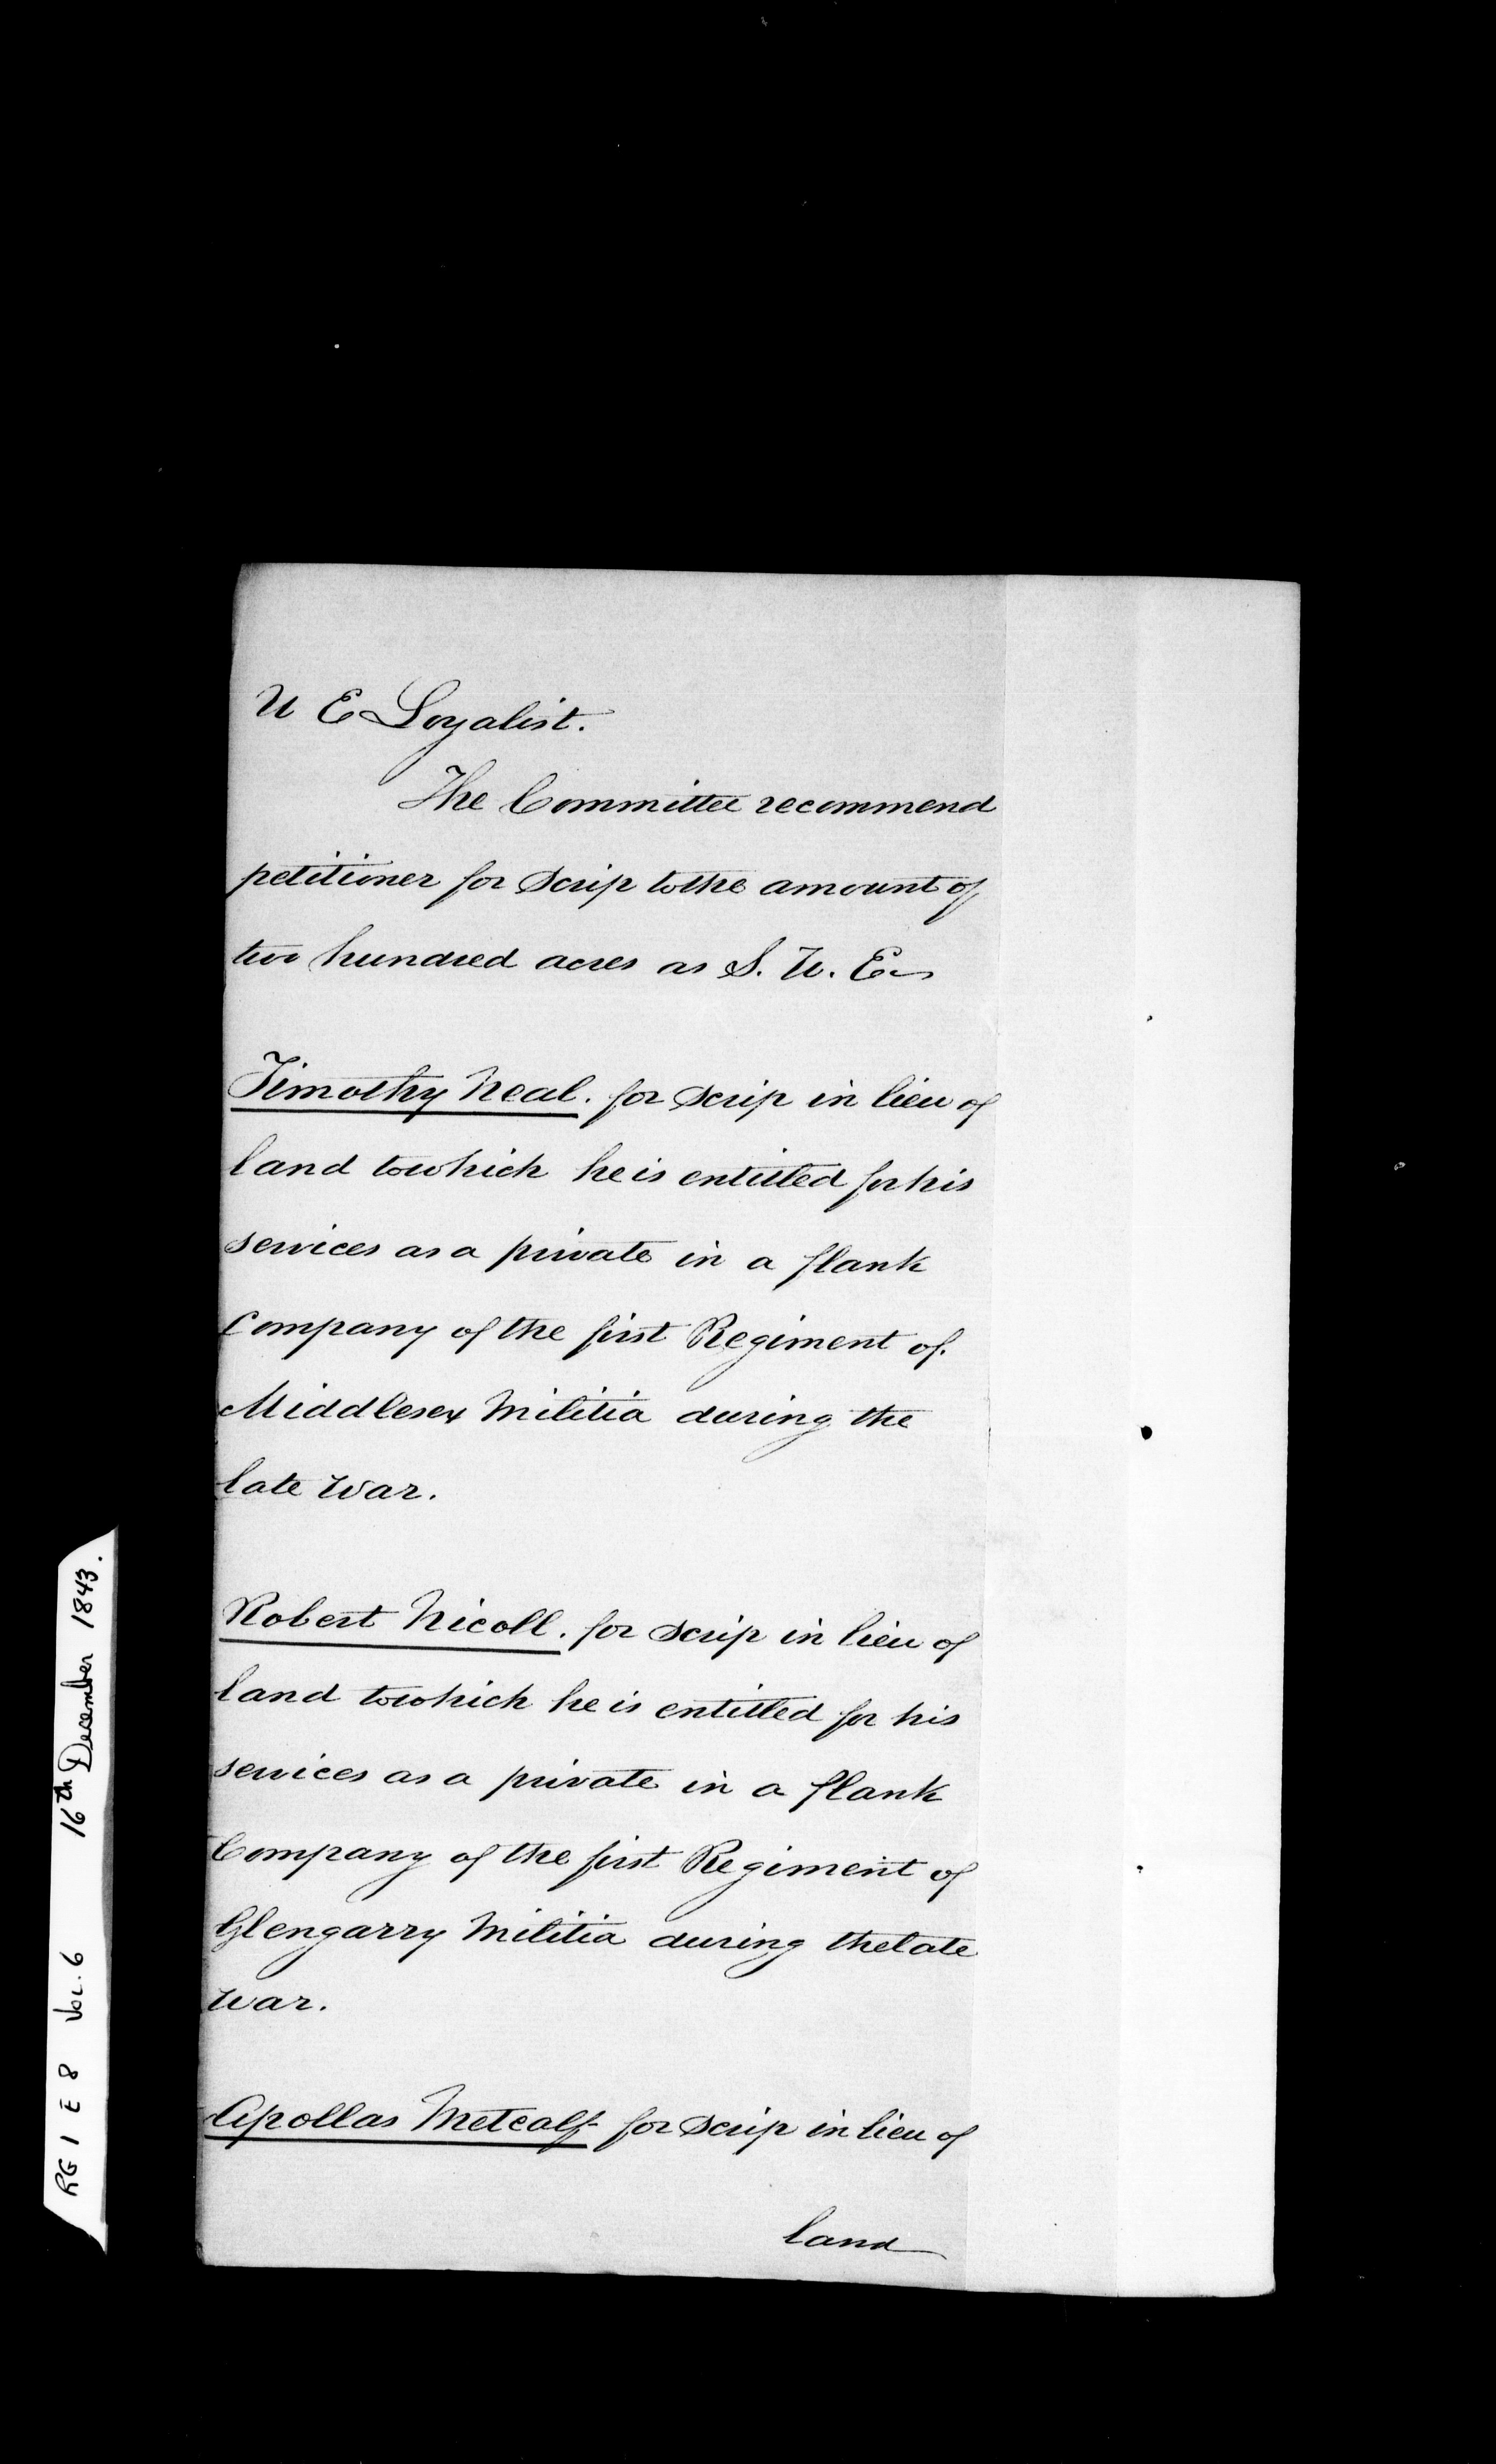 U E Loyalist.
The Committee recommend
petitioner for scrip to the amount of
two hundred acres as S. U. E
Timothy Neal. for scrip in lieu of
land to which he is entitled for his
services as a private in a flank
Company of the first Regiment of
Middlesex Militia during the
late War.
Robert Nicoll. for scrip in lieu of
land to which he is entitled for his
services as a private in a flank
Company of the first Regiment of
Glengarry Militia during the late
War.
Apollas Metcalf for scrip in lieu of
land
RG 1 E 8 Vol. 6 16th December 1843.